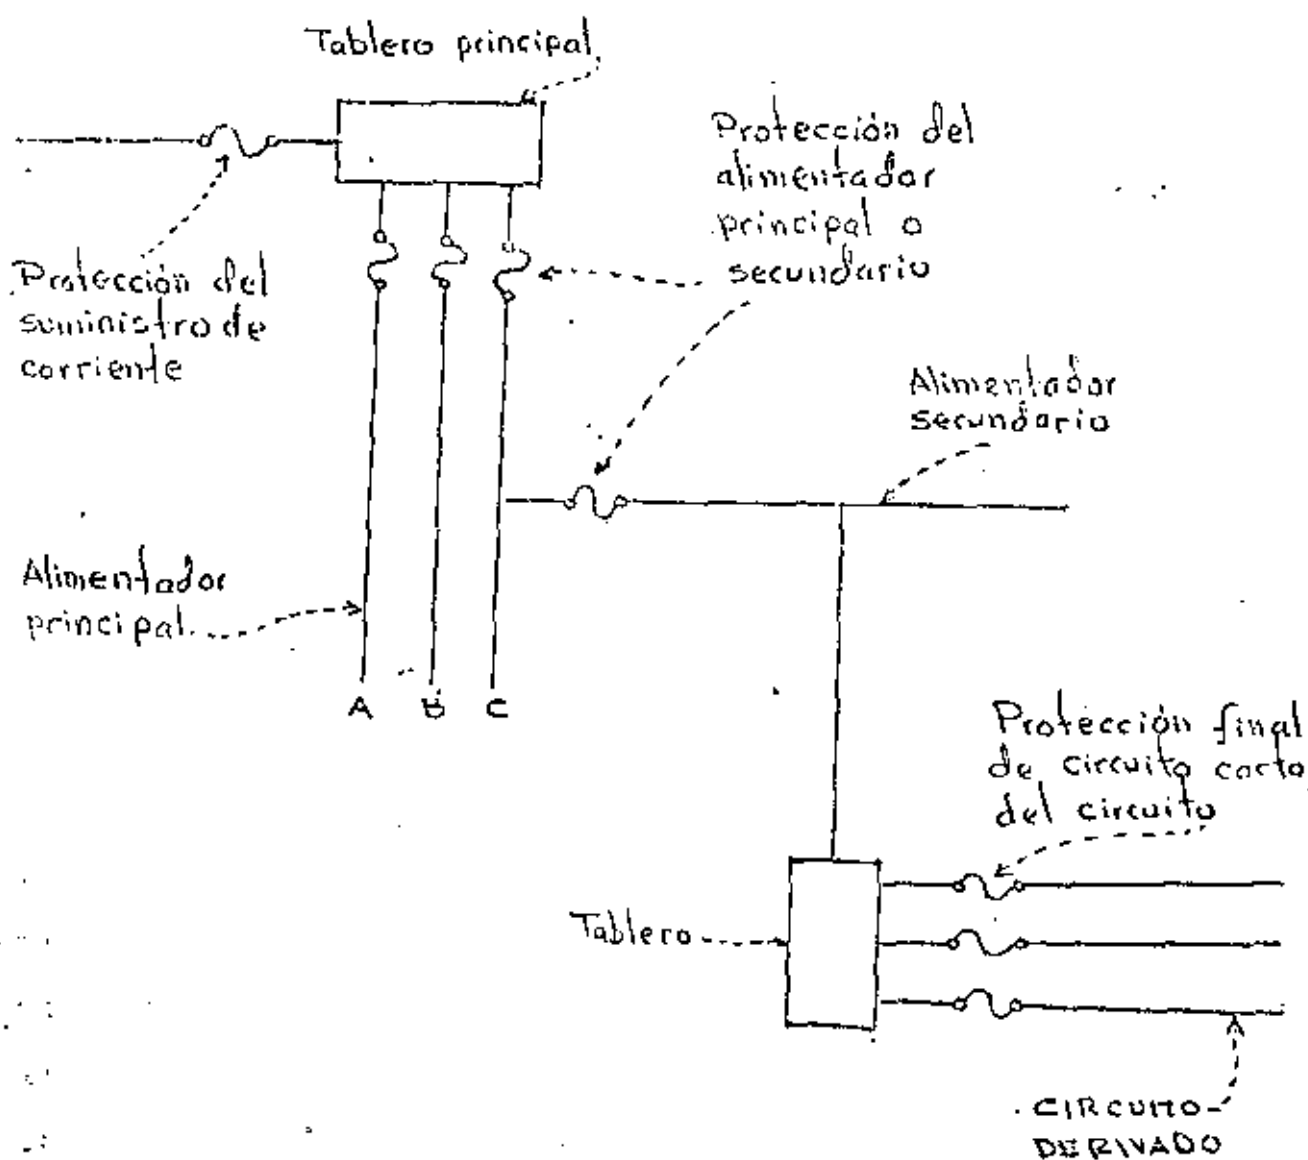 Tablero principal
Protección del
alimentador
principal o
secundario
Protección del
suministro de
corriente
Alimentador
secundario
Alimentador
principal
A B C
Protección final
de circuito corto
del circuito
Tablero
CIRCUITO
DERIVADO